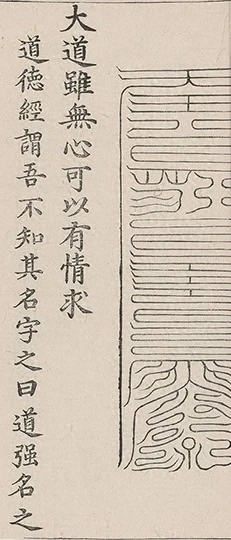 大道雖無心可以有情求
道徳經謂吾不知其名字之曰道强名之